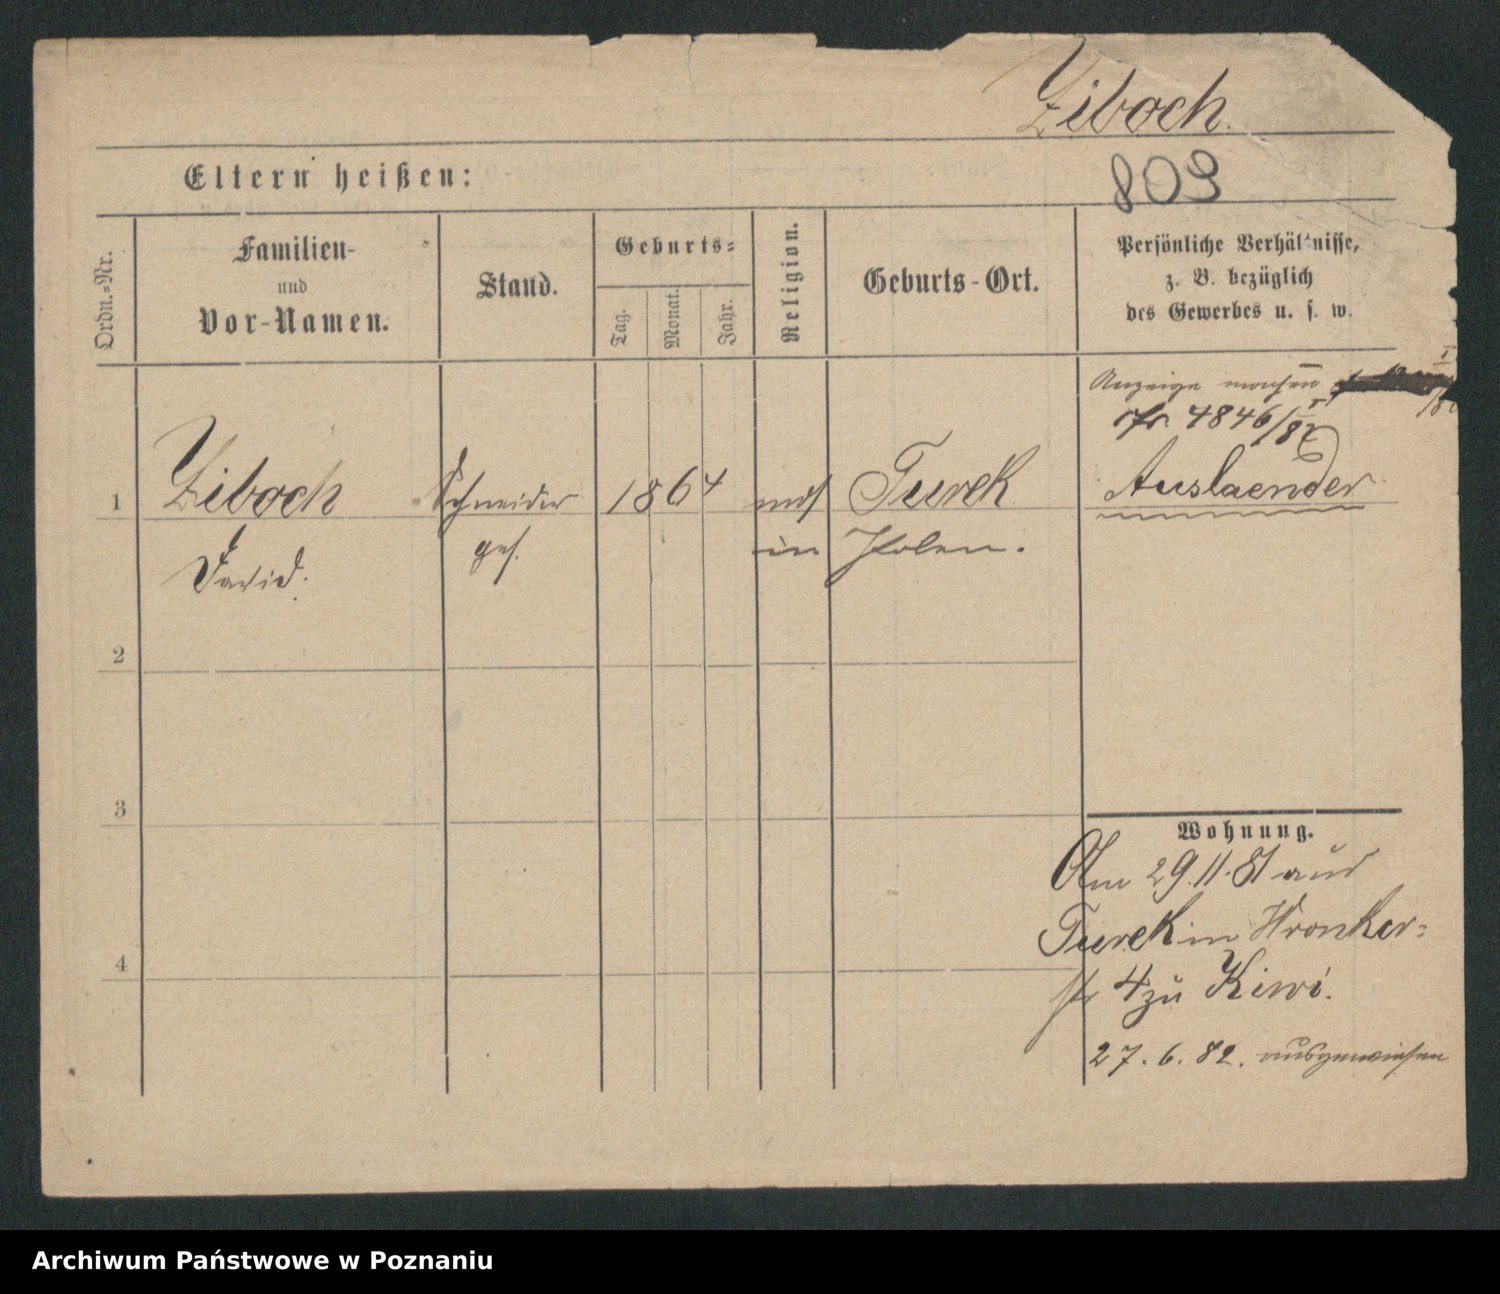 Ziboch.
Eltern heißen:
803
Ordn.-Nr.
Familien-
und
Vor-Namen.
Stand.
Geburts-
Tag.
Monat.
Jahr.
Religion.
Geburts-Ort.
Persönliche Verhältnisse,
z. B. bezüglich
des Gewerbes u. s. w.
Anzeige machen
Nr. 4846/82
1 Ziboch Schneider 1864 mos Turek Auslaender
David. ges. in Polen.
2
3
4
Wohnung.
Am 29.11.81 aus
Turek in Wronker-
str 4 zu Kiwi.
27.6.82. ausgewiesen
Archiwum Państwowe w Poznaniu